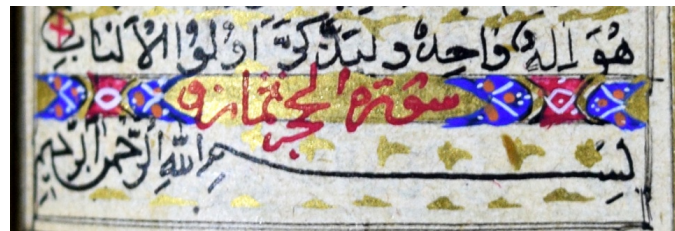 هُوَ اِلهٌ وَاحِدٌ وَلِيَذَّكَّرَ اُولُوا الْاَلْبَابِ
سورة الحجر
بِسْمِ اللّٰهِ الرَّحْمٰنِ الرَّحِيمِ